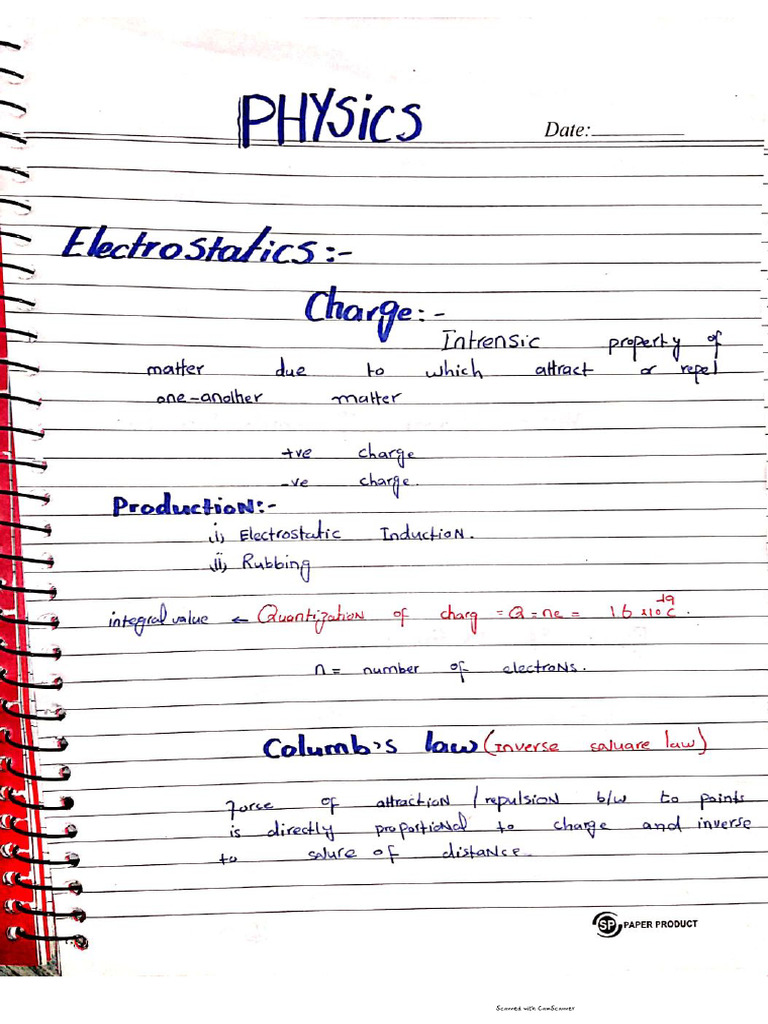 PHYSICS
Date:
Electrostatics:-
Charge:-
Intrensic property of
matter due to which attract or repel
one-another matter
+ve charge
-ve charge.
Production:-
i) Electrostatic Induction.
ii) Rubbing
integral value ← Quantization of charg = Q = ne = 1.6 x10⁻¹⁹C.
n = number of electrons.
Columb's law (Inverse saluare law)
Force of attraction / repulsion b/w to points
is directly proportional to charge and inverse
to salure of distance.
SP PAPER PRODUCT
Scanned with CamScanner